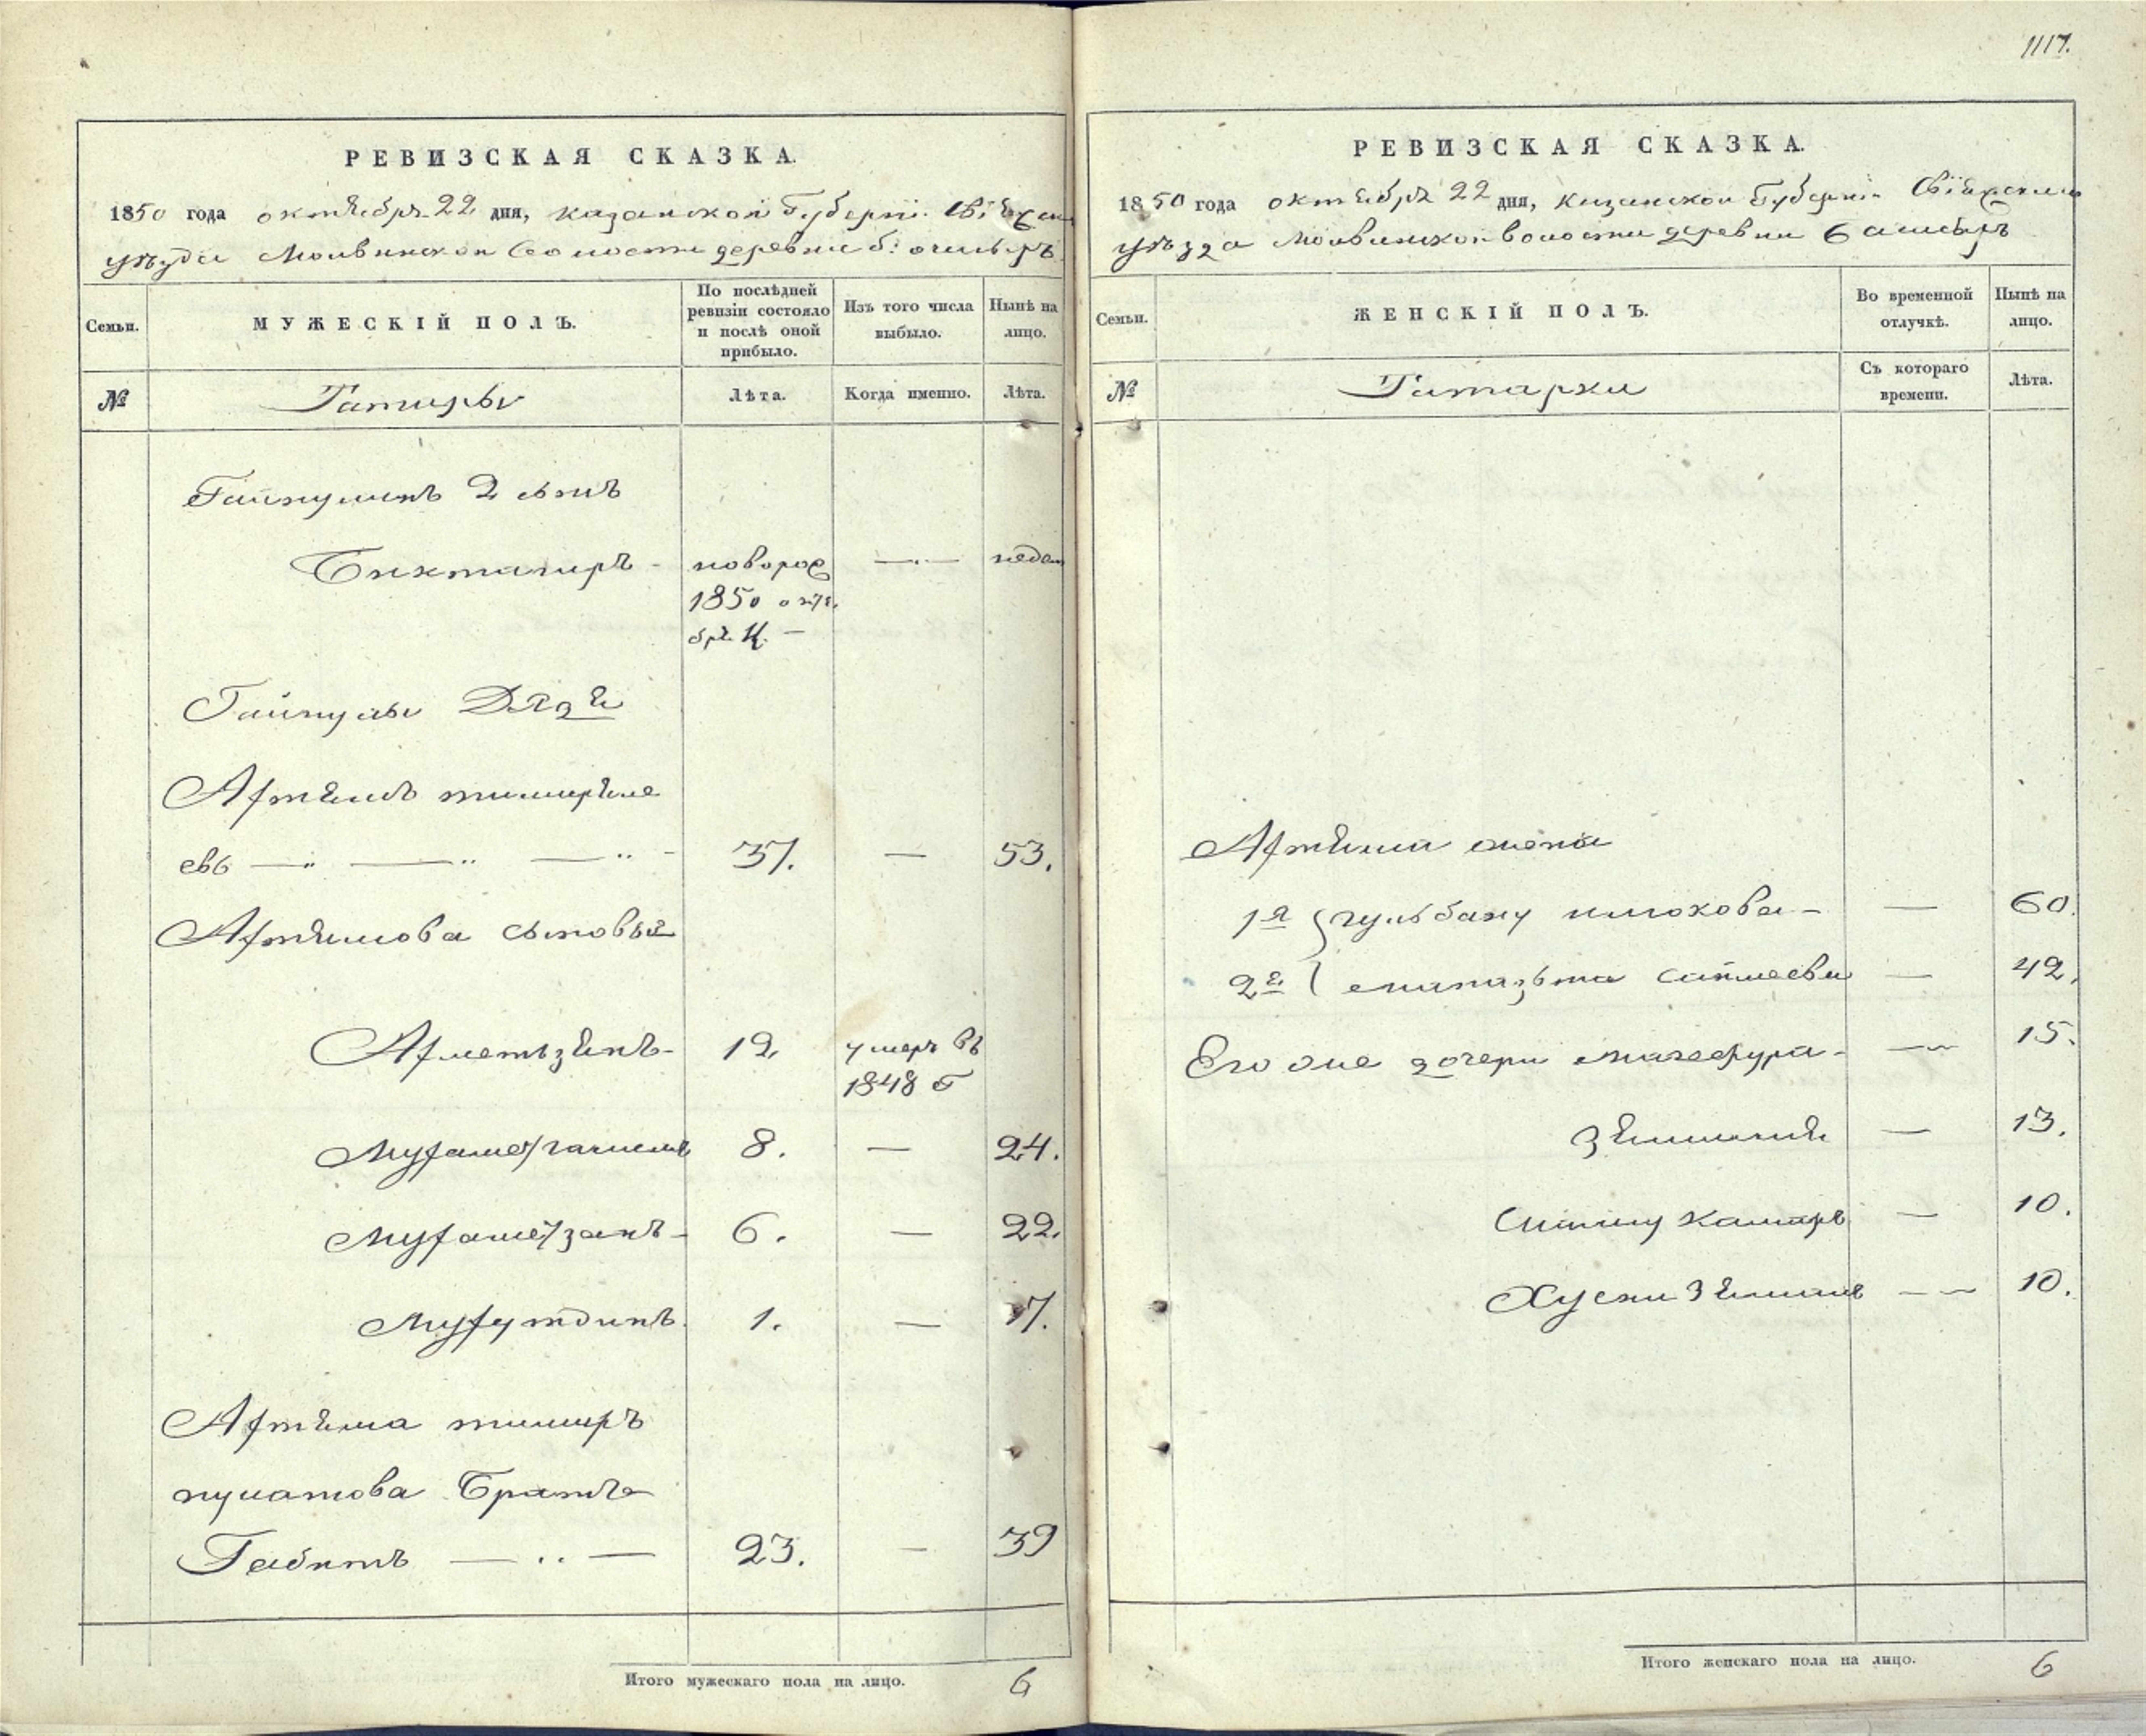 1117.
РЕВИЗСКАЯ СКАЗКА.
1850 года октября 22 дня, казанской Губерніи Свіяжскаго
уѣзда Молвинской волости деревни
Семьи. МУЖЕСКІЙ ПОЛЪ. По послѣдней ревизіи состояло и послѣ оной прибыло. Изъ того числа выбыло. Нынѣ на лицо.
№ Татары Лѣта. Когда именно. Лѣта.
Гайнулинъ 2 сынъ
Бикташиръ - новорож — недел
1850 октя
бря
Гайнулы Дядя
Ахтямъ тимирпу
евъ — 37. — 53.
Ахтямова сыновья
Ахметьзянъ - 12. умеръ въ
1848 г
Мухамет 8. — 24.
Мухаметзанъ - 6. — 22.
Мухутдинъ. 1. — 17.
Ахтяма тимиръ
пулатова Братъ
Габитъ — 23. — 39
Итого мужескаго пола на лицо. 6
РЕВИЗСКАЯ СКАЗКА.
1850 года октября 22 дня, казанской Губерніи Свіяжскаго
уѣзда Молвинской волости деревни
Семьи. ЖЕНСКІЙ ПОЛЪ. Во временной отлучкѣ. Нынѣ на лицо.
№ Татарки Съ котораго времени. Лѣта.
Ахтяма жены
1я гульбану — 60.
2я — 42.
Его же дочери магафура — 15.
— 13.
камаръ — 10.
Хусни — 10.
Итого женскаго пола на лицо. 6